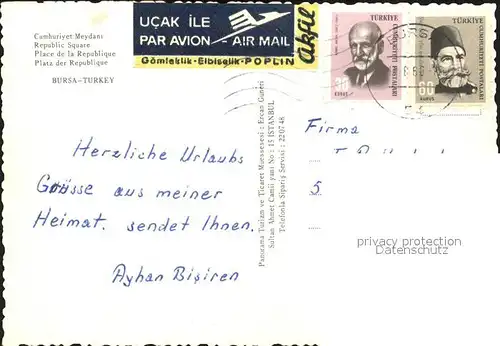 Cumhuriyet Meydanı
Republic Square
Place de la Republique
Platz der Republik
BURSA-TURKEY
UÇAK İLE
PAR AVION - AIR MAIL
Gömleklik-Elbiselik-POPLİN
akfil
TÜRKİYE
CUMHURİYETİ POSTALARI
TÜRKİYE
CUMHURİYETİ POSTALARI
60
BURS
Panorama Turizm ve Ticaret Muessesesi : Ercan Güneri
Sultan Ahmet Camii yanı No : 15 İSTANBUL
Telefonla Sipariş Servisi : 220748
Herzliche Urlaubs
Grüsse aus meiner
Heimat. sendet Ihnen.
Ayhan Bişiren
Firma
5
privacy protection